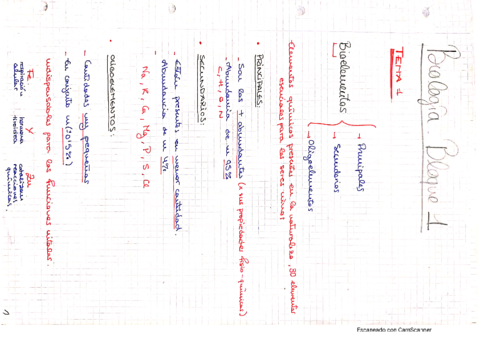 Biología Bloque 1
TEMA 1
Bioelementos
→ Principales
→ Secundarios
→ Oligoelementos
-Elementos químicos presentes en la naturaleza, 30 elementos
esenciales para los seres vivos.
• PRINCIPALES:
- Son los + abundantes (x sus propiedades físico-químicas)
- Abundancia de un 95%
C, H, O, N
• SECUNDARIOS:
- Están presentes en menor cantidad.
- Abundancia de un 4%
Na, K, Ca, Mg, P, S, Cl
• OLIGOELEMENTOS:
- Cantidades muy pequeñas
- En conjunto un (0'5%)
indispensables para las funciones vitales.
Fe, Y Zn
respiración celular
hormona tiroidea
reacciones químicas.
1
Escaneado con CamScanner